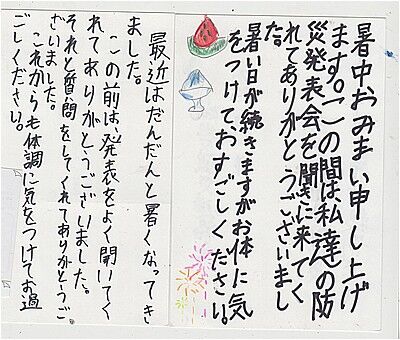 暑中おみまい申し上げ
ます。この間は、私達の防
災発表会を聞きに来てく
れてありがとうございまし
た。
暑い日が続きますがお体に気
をつけておすごしください。
最近はだんだんと暑くなってき
ました。
この前は、発表をよく開いてく
れてありがとうございました。
それと質問をしてくれてありがとうご
ざいました。
これからも体調に気をつけてお過
ごしください。